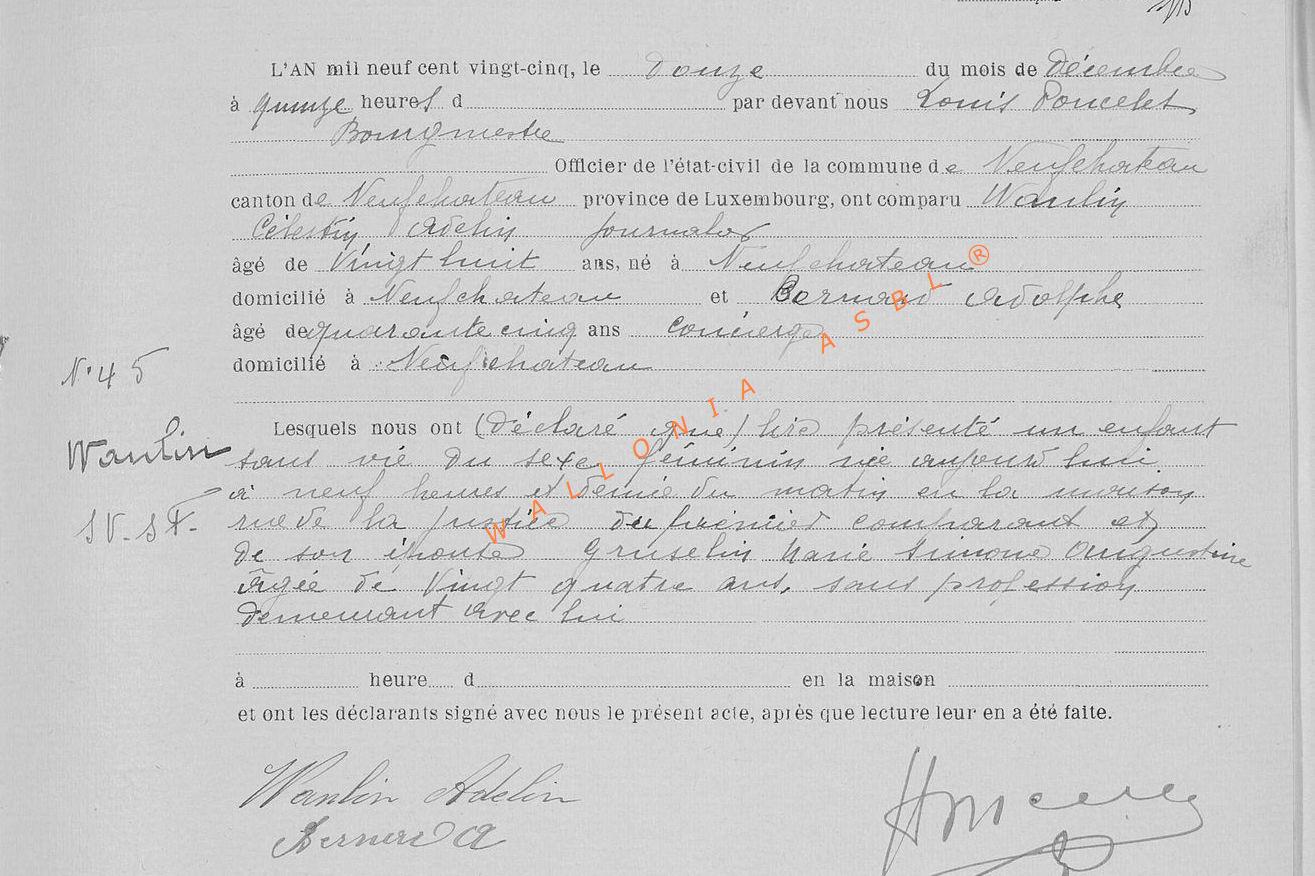 L'AN mil neuf cent vingt-cinq, le douze du mois de Décembre
à quinze heures d par devant nous Louis Poncelet
Bourgmestre
Officier de l'état-civil de la commune de Neufchateau
canton de Neufchateau province de Luxembourg, ont comparu Wanlin
Célestin Adelin journalier
âgé de Vingt huit ans, né à Neufchateau
domicilié à Neufchateau et Bernard Adolphe
âgé de quarante cinq ans concierge
domicilié à Neufchateau
N° 45
Lesquels nous ont (déclaré que) lire présenté un enfant
Wanlin
sans vie du sexe féminin née aujourd'hui
à neuf heures et demie du matin en la maison
SV. SF.
rue de la justice du premier comparant et
de son épouse Gruselin Marie Simone Augustine
âgée de Vingt quatre ans, sans profession
demeurant avec lui
à heure d en la maison
et ont les déclarants signé avec nous le présent acte, après que lecture leur en a été faite.
Wanlin Adelin
Bernard A
WALLONIA ASBL ®